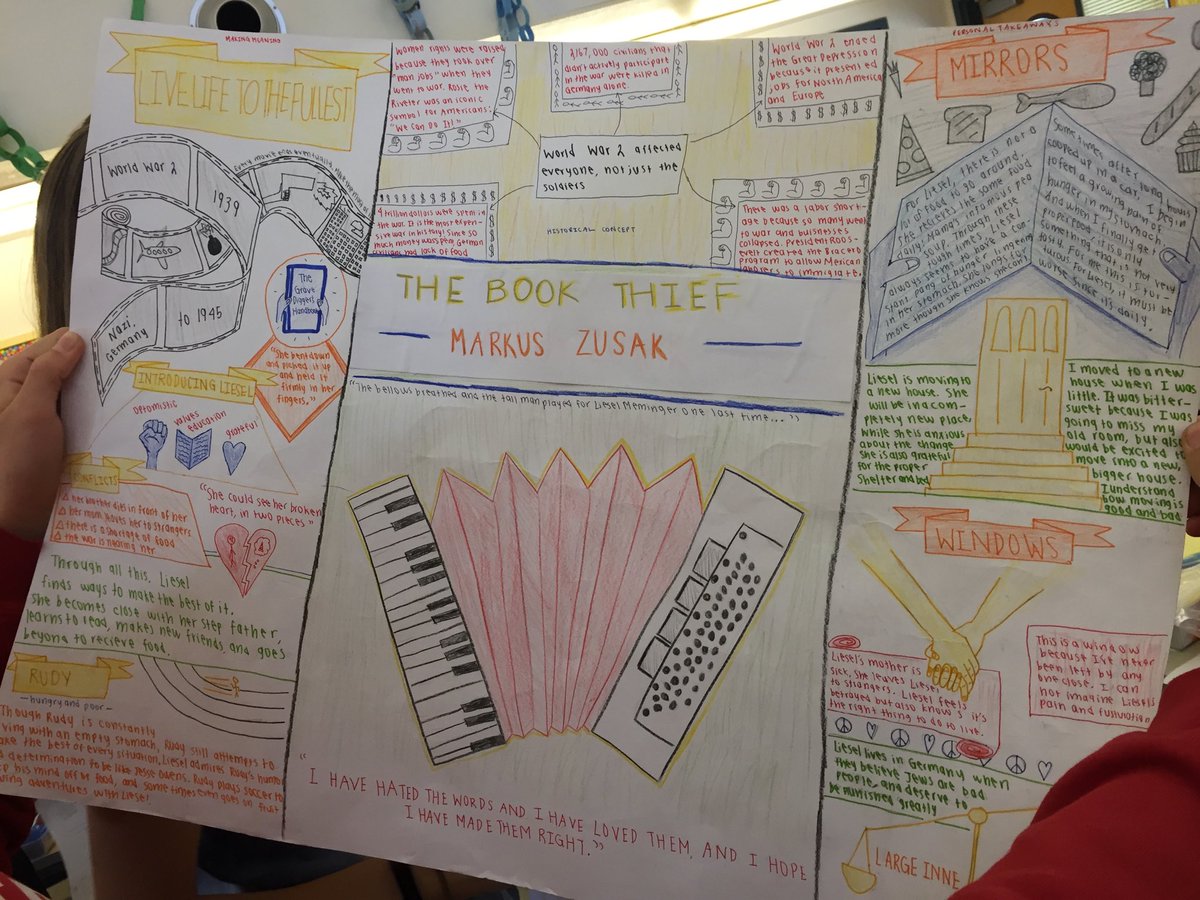 MAKING MEANING
LIVE LIFE TO THE FULLEST
World War 2
1939
Nazi Germany
to 1945
The
Grave
Diggers
Handbook
"She bent down
and picked it up
and held it
firmly in her
fingers."
INTRODUCING LIESEL
values
education
grateful
CONFLICTS
her brother dies in front of her
her mom leaves her to strangers
there is a shortage of food
the war is nearing her
"She could see her broken
heart, in two pieces"
Through all this, Liesel
finds ways to make the best of it.
She becomes close with her step father,
learns to read, makes new friends, and goes
beyond to recieve food.
RUDY
—hungry and poor—
Though Rudy is constantly
with an empty stomach, Rudy still attempts to
the best of every situation. Liesel admires Rudy's humor
determination to be like Jesse Owens. Rudy plays soccer to
his mind off of food, and sometimes even goes on fruit
adventures with Liesel.
Women rights were raised
because they took over
"man jobs" when they
went to war. Rosie the
Riveter was an iconic
symbol for Americans:
"We Can Do It!"
2167,000 civilians that
didn't actively participate
in the war were killed in
Germany alone.
World War 2 ended
the Great Depression
because it presented
jobs for North America
and Europe
World War 2 affected
everyone, not just the
soldiers
4 trillion dollars were spent in
the war. It is the most expen-
sive war in history! Since so
much money was spent, German
had lack of food
HISTORICAL CONCEPT
There was a labor short-
age because so many went
to war and buisnesses
collapsed. President Roos-
evelt created the Bracero
program to allow Mexican
laborers to immigrate.
THE BOOK THIEF
MARKUS ZUSAK
"The bellows breathed and the tall man played for Liesel Meminger one last time..."
"I HAVE HATED THE WORDS AND I HAVE LOVED THEM, AND I HOPE
I HAVE MADE THEM RIGHT."
PERSONAL TAKEAWAYS
MIRRORS
For Liesel, there is not a
lot of food to go around.
She receives the same food
daily: Mama's infamous pea
soup. Through these
tough times, Liesel
always seems to have a con-
stant pang of hunger lingering
in her stomach. She longs for
more though she knows she can't.
Sometimes after long hours
cooped up in a car, I begin
to feel a growing pain of
hunger in my stomach.
And when I finally get
proper food, it is only
something that is not very
tasty. For me this is tor-
turous. For Liesel, it must be
worse since it's daily.
Liesel is moving to
a new house. She
will be in a com-
pletely new place
while she is anxious
about the change,
She is also grateful
for the proper
shelter and bed
I moved to a new
house when I was
little. It was bitter-
sweet because I was
going to miss my
old room, but also
would be excited to
move into a new,
bigger house.
I understand
how moving is
good and bad
WINDOWS
Liesel's mother is
sick, she leaves Liesel
to strangers. Liesel feels
betrayed but also know's it's
the right thing to do to live.
This is a window
because I've never
been left by any
one close. I can
not imagine Liesel's
pain and fustration
Liesel lives in Germany when
they believe Jews are bad
people, and deserve to
be punished greatly
LARGE INNE